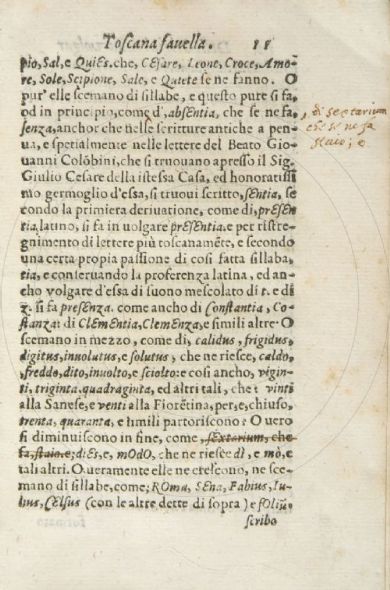 Toscana fauella. 11
pio, Sal, e QuiEs. che, CEsare, Leone, Croce, Amo-
re, Sole, Scipione, Sale, e Quiete se ne fanno. O
pur' elle scemano di sillabe, e questo pure si fa,
od in principio, come d', absentia, che se ne fa,
senza, anchor che nelle scritture antiche a pen-
ua, e spetialmente nelle lettere del Beato Gio-
uanni Colõbini, che si truouano apresso il Sig.
Giulio Cesare della istessa Casa, ed honoratissi
mo germoglio d'essa, si truoui scritto, sentia, se
condo la primiera deriuatione, come di, presen
tia, latino, si fa in uolgare presentia. e per ristre-
gnimento di lettere più toscanamẽte, e secondo
una certa propia passione di cosi fatta sillaba,
tia, e conseruando la proferenza latina, ed an-
cho volgare d'essa di suono mescolato di t. e di
z. si fa presenza. come ancho di Constantia, Co-
stanza: di Clementia, Clemenza, e simili altre. O
scemano in mezzo, come di, calidus, frigidus,
digitus, inuolutus, e solutus, che ne riesce, caldo,
freddo, dito, inuolto, e sciolto: e cosi ancho, vigin-
ti, triginta, quadraginta, ed altri tali, che vinti
alla Sanese, e venti alla Fiorẽtina, per, e, chiuso,
trenta, quaranta, e simili partoriscono. O uero
si diminuiscono in fine, come, sextarium, che
fa, staio. e; diEs, e, mOdO, che ne riesce dì, e mò, e
tali altri. O ueramente elle ne crescono, ne sce-
mano di sillabe, come; ROma, SEna, Fabius, Iu-
lius, CElsus (con le altre dette di sopra) e fOliũ
scribo
, di sextarium
che se ne fa
staio; e